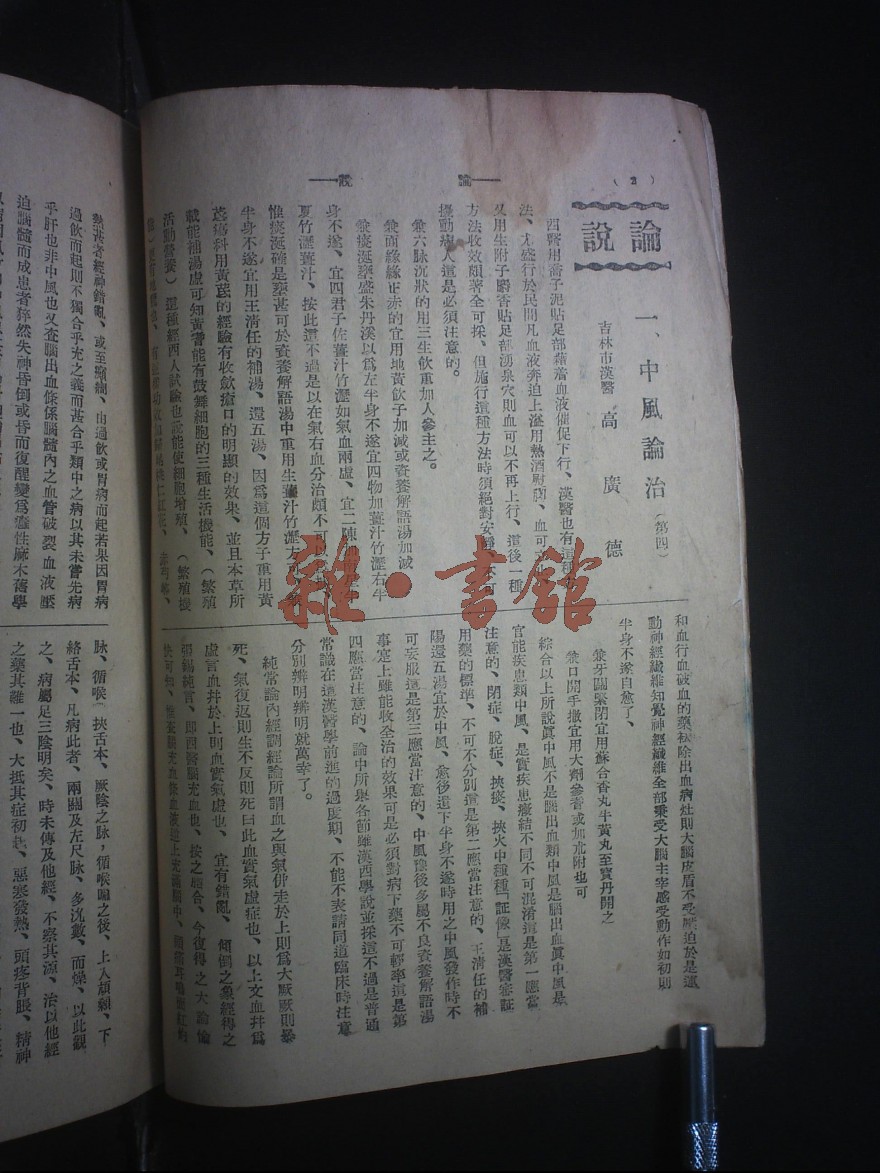 （2）
論
說
論說
一、中風論治（第四）
吉林市漢醫 高廣德
西醫用膏子泥貼足部藉着血液催促下行、漢醫也有這種
法、尤盛行於民間凡血液奔迫上溢用熱酒
又用生附子麝香貼足部湧泉穴則血可以不再上行、這後一種
方法收效頗著全可採、但施行這種方法時須絕對安
擾動病人這是必須注意的。
兼六脉沉狀的用三生飲重加人參主之。
兼面緣緣正赤的宜用地黃飲子加減或資養解語湯加減
兼痰涎壅盛朱丹溪以為左半身不遂宜四物加薑汁竹瀝右半
身不遂、宜四君子佐薑汁竹瀝如氣血兩虛、宜二陳
夏竹瀝薑汁、按此還不過是以在氣右血分治頗不可
惟痰涎確是壅甚可於資養解語湯中重用生薑汁竹瀝
半身不遂宜用王清任的補湯、還五湯、因為這個方子重用黃
蓍瘍科用黃蓍的經驗有收歛瘡口的明顯的效果、並且本草所
載能補湯虛可知黃蓍能有鼓舞細胞的三種生活機能、（繁殖
活動營養）這種經西人試驗也說能使細胞增殖、（繁殖機
和血行血破血的藥袪除出血病灶則大腦皮盾不受壓迫於是運
動神經纖維知覺神經纖維全部秉受大腦主宰感受動作如初則
半身不遂自愈了、
兼牙關緊閉宜用蘇合香丸牛黃丸至寶丹開之
兼口開手撒宜用大劑參耆或加朮附也可
綜合以上所說眞中風不是腦出血類中風是腦出血眞中風是
官能疾患類中風、是實疾患癥結不同不可混淆這是第一應當
注意的、閉症、脫症、挾痰、挾火中種種「証像」是漢醫審証
用藥的標準、不可不分別這是第二應當注意的、王清任的補
陽還五湯宜於中風、愈後遺下半身不遂時用之中風發作時不
可妄服這是第三應當注意的、中風豫後多屬不良資養解語湯
事寔上雖能收全治的效果可是必須對病下藥不可輕率這是第
四應當注意的、論中所舉各節雖漢西學說並採這不過是普通
常識在這漢醫學前進的過度期、不能不夾請同道臨床時注意
分別辨明辨明就萬幸了。
純常論內經調經論所謂血之與氣併走於上則為大厥厥則暴
死、氣復返則生不反則死曰此血實氣虛症也、以上文血并為
虛言血并於上則血實氣虛也、宜有錯亂、傾倒之象經得之
張錫純言、即西醫腦充血也、按之頗合、今復得之大論愉
熱甚者經神錯亂、或至癲癇、由過飲或胃病而起若果因胃病
過飲而起則不獨合乎充之義而甚合乎類中之病以其未嘗先病
乎肝也非中風也又查腦出血條係腦髓內之血管破裂血液壓
迫腦髓而成患者猝然失神昏倒或昏而復醒變為癱性麻木舊學
脉、循喉）挾舌本、厥陰之脉，循喉嚨之後、上入頏顙、下
絡舌本、凡病此者、兩關及左尺脉、多沉數、而燥、以此觀
之、病屬足三陰明矣、時未傳及他經、不察其源、治以他經
之藥其離一也、大抵其症初起、惡寒發熱、頭疼背脹、精神
雜·書館